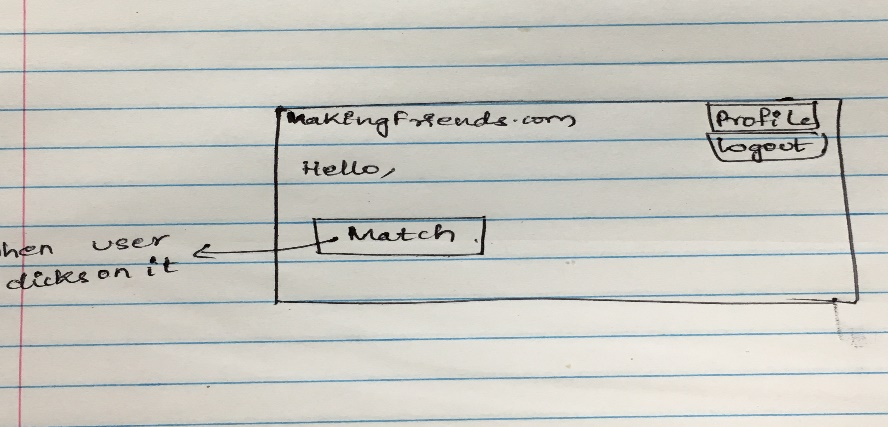 MakingFriends.com
Profile
Logout
Hello,
Match.
hen user
clicks on it